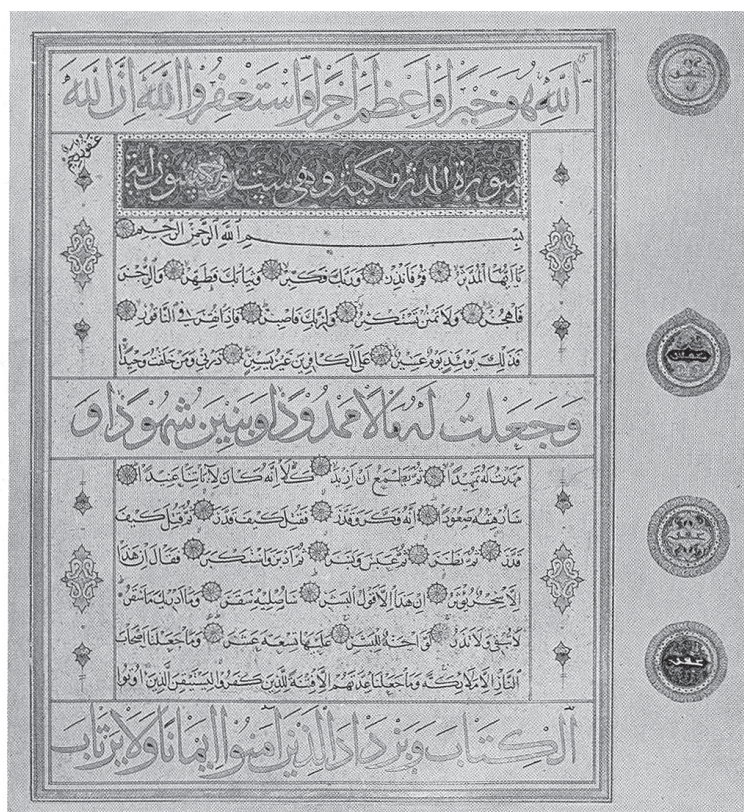 ٱللَّهِ هُوَ خَيْرًا وَأَعْظَمَ أَجْرًا وَاسْتَغْفِرُوا اللَّهَ إِنَّ اللَّهَ
غَفُورٌ رَحِيمٌ
سورة المدثر مكية وهي ست وخمسون آية
بِسْمِ اللَّهِ الرَّحْمَٰنِ الرَّحِيمِ
يَا أَيُّهَا الْمُدَّثِّرُ قُمْ فَأَنْذِرْ وَرَبَّكَ فَكَبِّرْ وَثِيَابَكَ فَطَهِّرْ وَالرُّجْزَ
فَاهْجُرْ وَلَا تَمْنُنْ تَسْتَكْثِرُ وَلِرَبِّكَ فَاصْبِرْ فَإِذَا نُقِرَ فِي النَّاقُورِ
فَذَٰلِكَ يَوْمَئِذٍ يَوْمٌ عَسِيرٌ عَلَى الْكَافِرِينَ غَيْرُ يَسِيرٍ ذَرْنِي وَمَنْ خَلَقْتُ وَحِيدًا
وَجَعَلْتُ لَهُ مَالًا مَمْدُودًا وَبَنِينَ شُهُودًا وَ
مَهَّدْتُ لَهُ تَمْهِيدًا ثُمَّ يَطْمَعُ أَنْ أَزِيدَ كَلَّا إِنَّهُ كَانَ لِآيَاتِنَا عَنِيدًا
سَأُرْهِقُهُ صَعُودًا إِنَّهُ فَكَّرَ وَقَدَّرَ فَقُتِلَ كَيْفَ قَدَّرَ ثُمَّ قُتِلَ كَيْفَ
قَدَّرَ ثُمَّ نَظَرَ ثُمَّ عَبَسَ وَبَسَرَ ثُمَّ أَدْبَرَ وَاسْتَكْبَرَ فَقَالَ إِنْ هَٰذَا
إِلَّا سِحْرٌ يُؤْثَرُ إِنْ هَٰذَا إِلَّا قَوْلُ الْبَشَرِ سَأُصْلِيهِ سَقَرَ وَمَا أَدْرَيكَ مَا سَقَرُ
لَا تُبْقِي وَلَا تَذَرُ لَوَّاحَةٌ لِلْبَشَرِ عَلَيْهَا تِسْعَةَ عَشَرَ وَمَا جَعَلْنَا أَصْحَابَ
النَّارِ إِلَّا مَلَائِكَةً وَمَا جَعَلْنَا عِدَّتَهُمْ إِلَّا فِتْنَةً لِلَّذِينَ كَفَرُوا لِيَسْتَيْقِنَ الَّذِينَ أُوتُوا
الْكِتَابَ وَيَزْدَادَ الَّذِينَ آمَنُوا إِيمَانًا وَلَا يَرْتَابَ